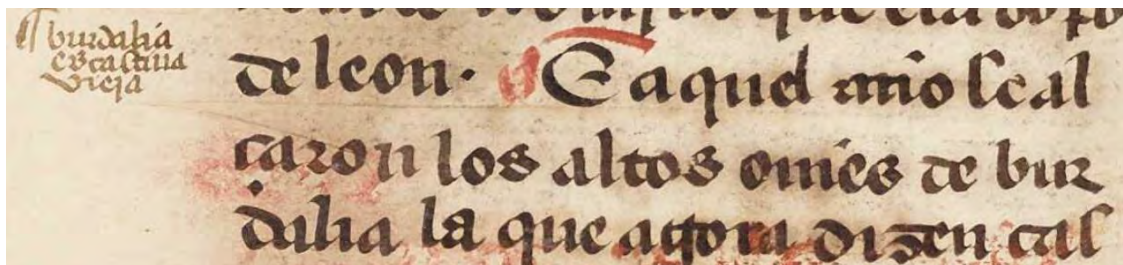 ¶ burdalia
es castiella
vieja
que era obpo
de leon. ¶ E aquel anno se al
çaron los altos omes de bur
dalia la que agora dizen cas